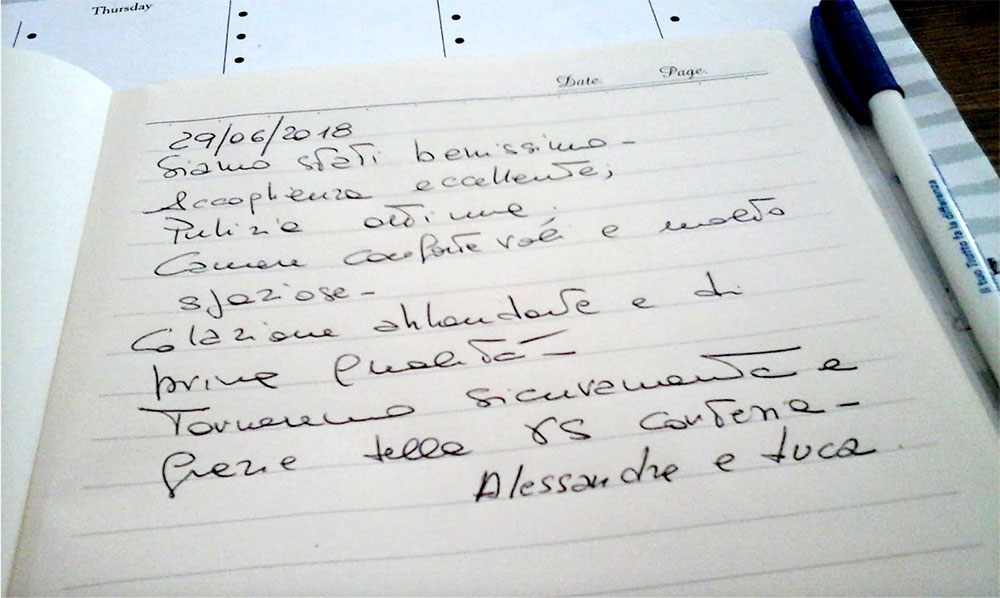 Thursday
Date: Page:
29/06/2018
Siamo stati benissimo -
Accoglienza eccellente;
Pulizia ottima.
Camere confortevoli e molto
spaziose -
Colazione abbondante e di
prima qualità -
Torneremo sicuramente e
grazie della VS cortesia -
Alessandra e Luca.
Il tuo Tratto fa la differenza